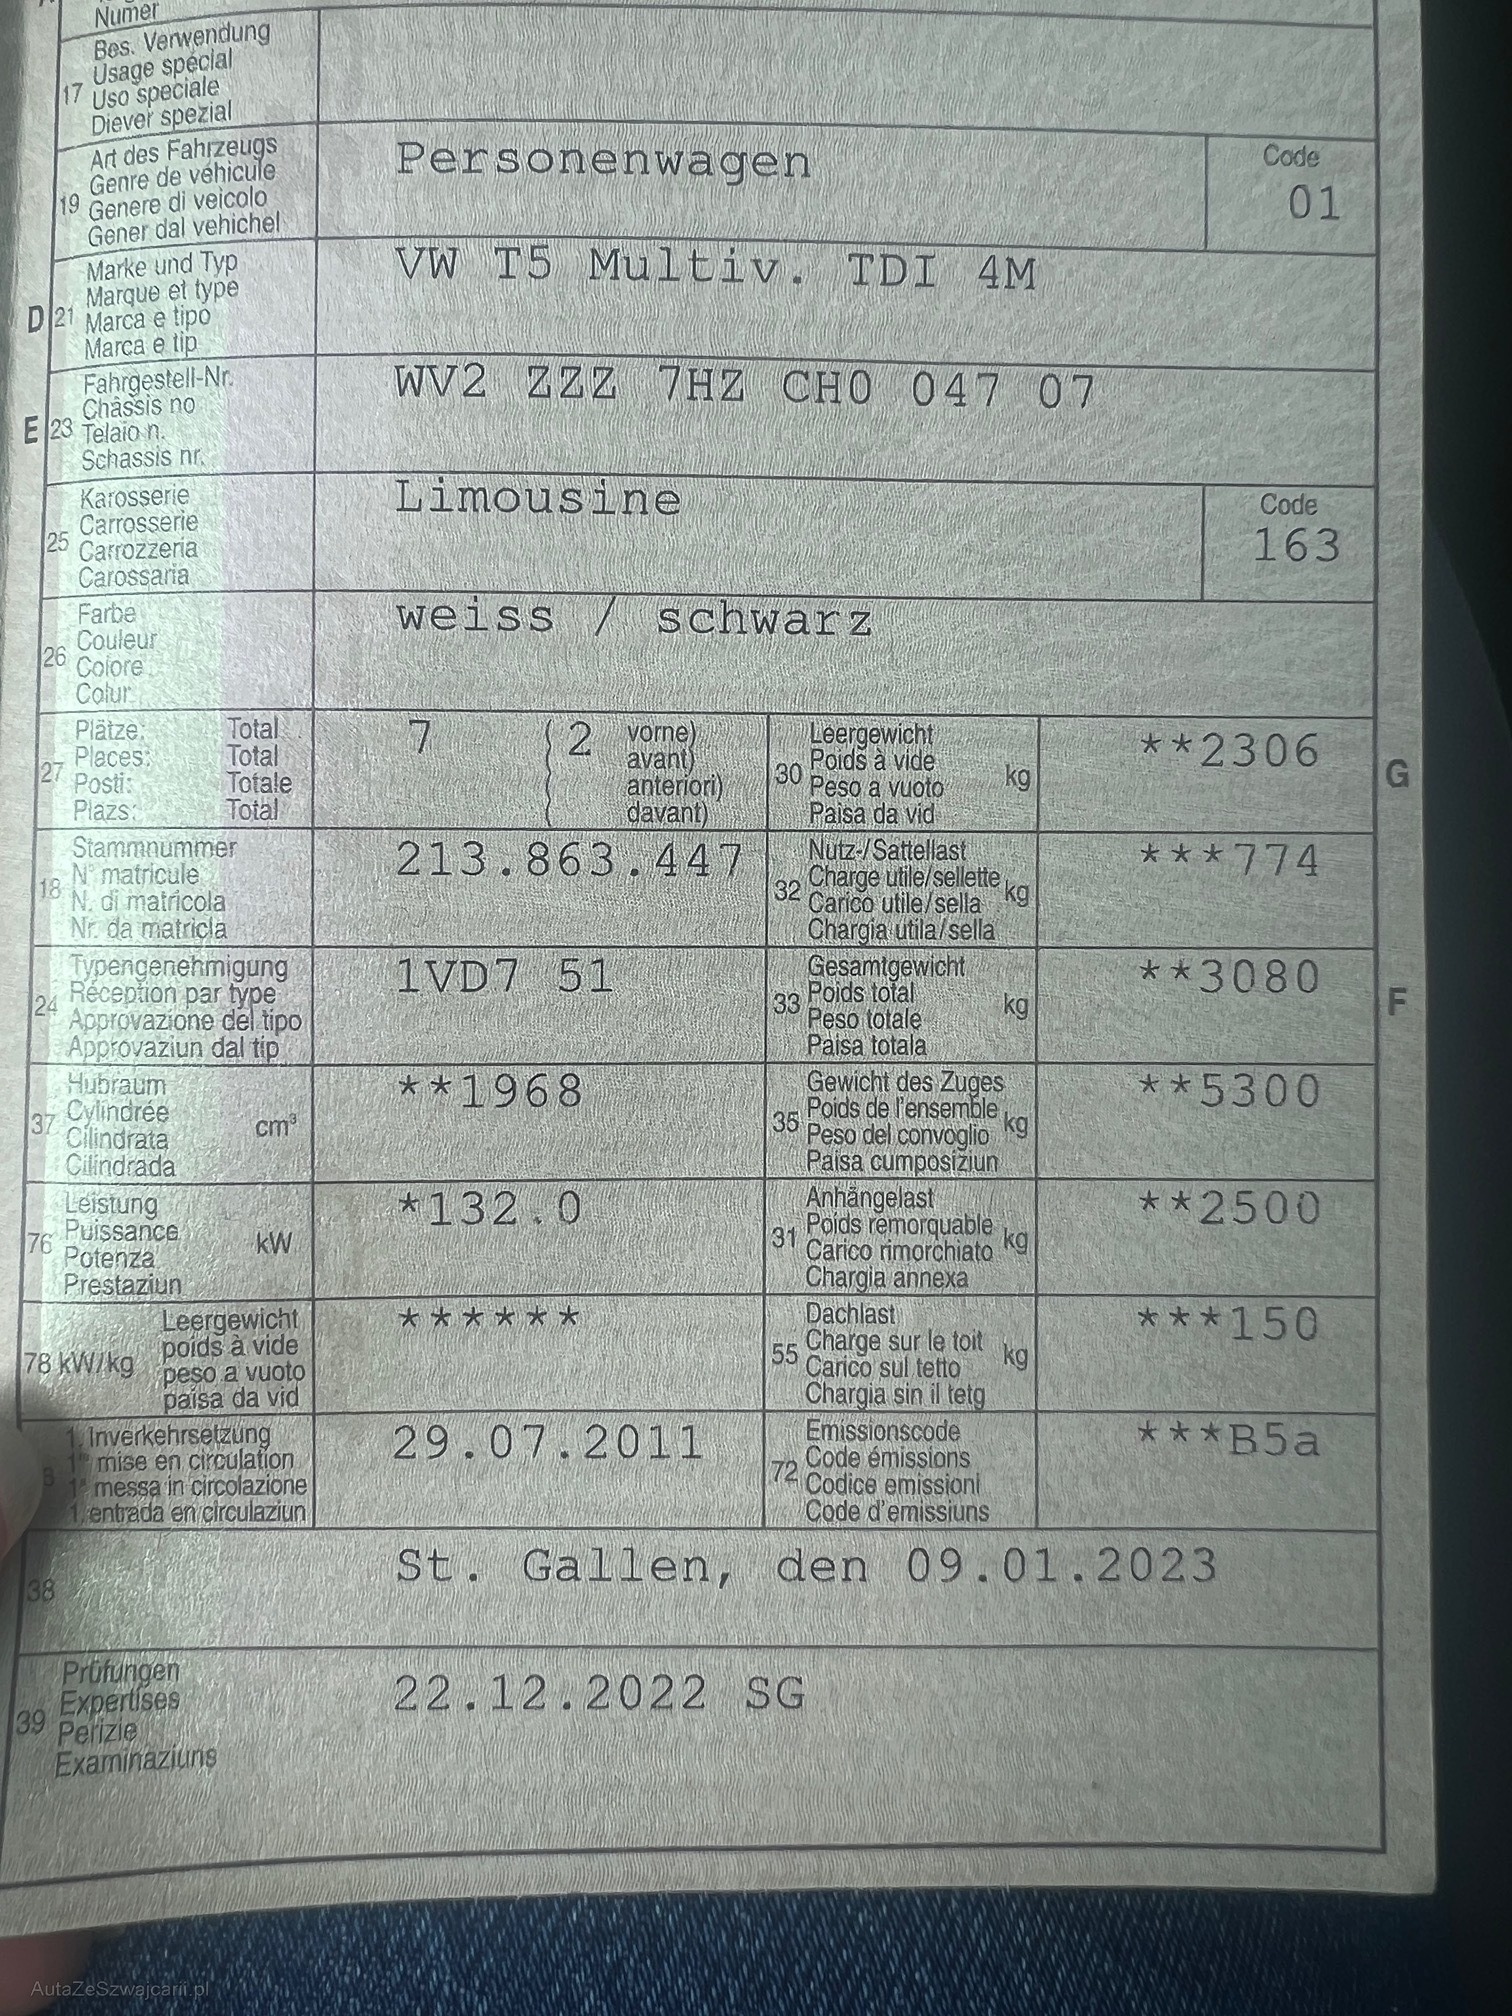 Numer
17
Bes. Verwendung
Usage spécial
Uso speciale
Diever spezial
19
Art des Fahrzeugs
Genre de véhicule
Genere di veicolo
Gener dal vehichel
Personenwagen
Code
01
D 21
Marke und Typ
Marque et type
Marca e tipo
Marca e tip
VW T5 Multiv. TDI 4M
E 23
Fahrgestell-Nr.
Châssis no
Telaio n.
Schassis nr.
WV2 ZZZ 7HZ CH0 047 07
25
Karosserie
Carrosserie
Carrozzeria
Carossaria
Limousine
Code
163
26
Farbe
Couleur
Colore
Colur
weiss / schwarz
27
Plätze: Total
Places: Total
Posti: Totale
Plazs: Total
7 ( 2 vorne)
avant)
anteriori)
davant)
30
Leergewicht
Poids à vide
Peso a vuoto kg
Paisa da vid
**2306
G
18
Stammnummer
N° matricule
N. di matricola
Nr. da matricla
213.863.447
32
Nutz-/Sattellast
Charge utile/sellette kg
Carico utile/sella
Chargia utila/sella
***774
24
Typengenehmigung
Réception par type
Approvazione del tipo
Approvaziun dal tip
1VD7 51
33
Gesamtgewicht
Poids total kg
Peso totale
Paisa totala
**3080
F
37
Hubraum
Cylindrée cm³
Cilindrata
Cilindrada
**1968
35
Gewicht des Zuges
Poids de l'ensemble kg
Peso del convoglio
Paisa cumposiziun
**5300
76
Leistung
Puissance kW
Potenza
Prestaziun
*132.0
31
Anhängelast
Poids remorquable kg
Carico rimorchiato
Chargia annexa
**2500
78 kW/kg
Leergewicht
poids à vide
peso a vuoto
paisa da vid
******
55
Dachlast
Charge sur le toit kg
Carico sul tetto
Chargia sin il tetg
***150
B
1. Inverkehrsetzung
1re mise en circulation
1a messa in circolazione
1. entrada en circulaziun
29.07.2011
72
Emissionscode
Code émissions
Codice emissioni
Code d'emissiuns
***B5a
38
St. Gallen, den 09.01.2023
39
Prüfungen
Expertises
Perizie
Examinaziuns
22.12.2022 SG
AutaZeSzwajcarii.pl